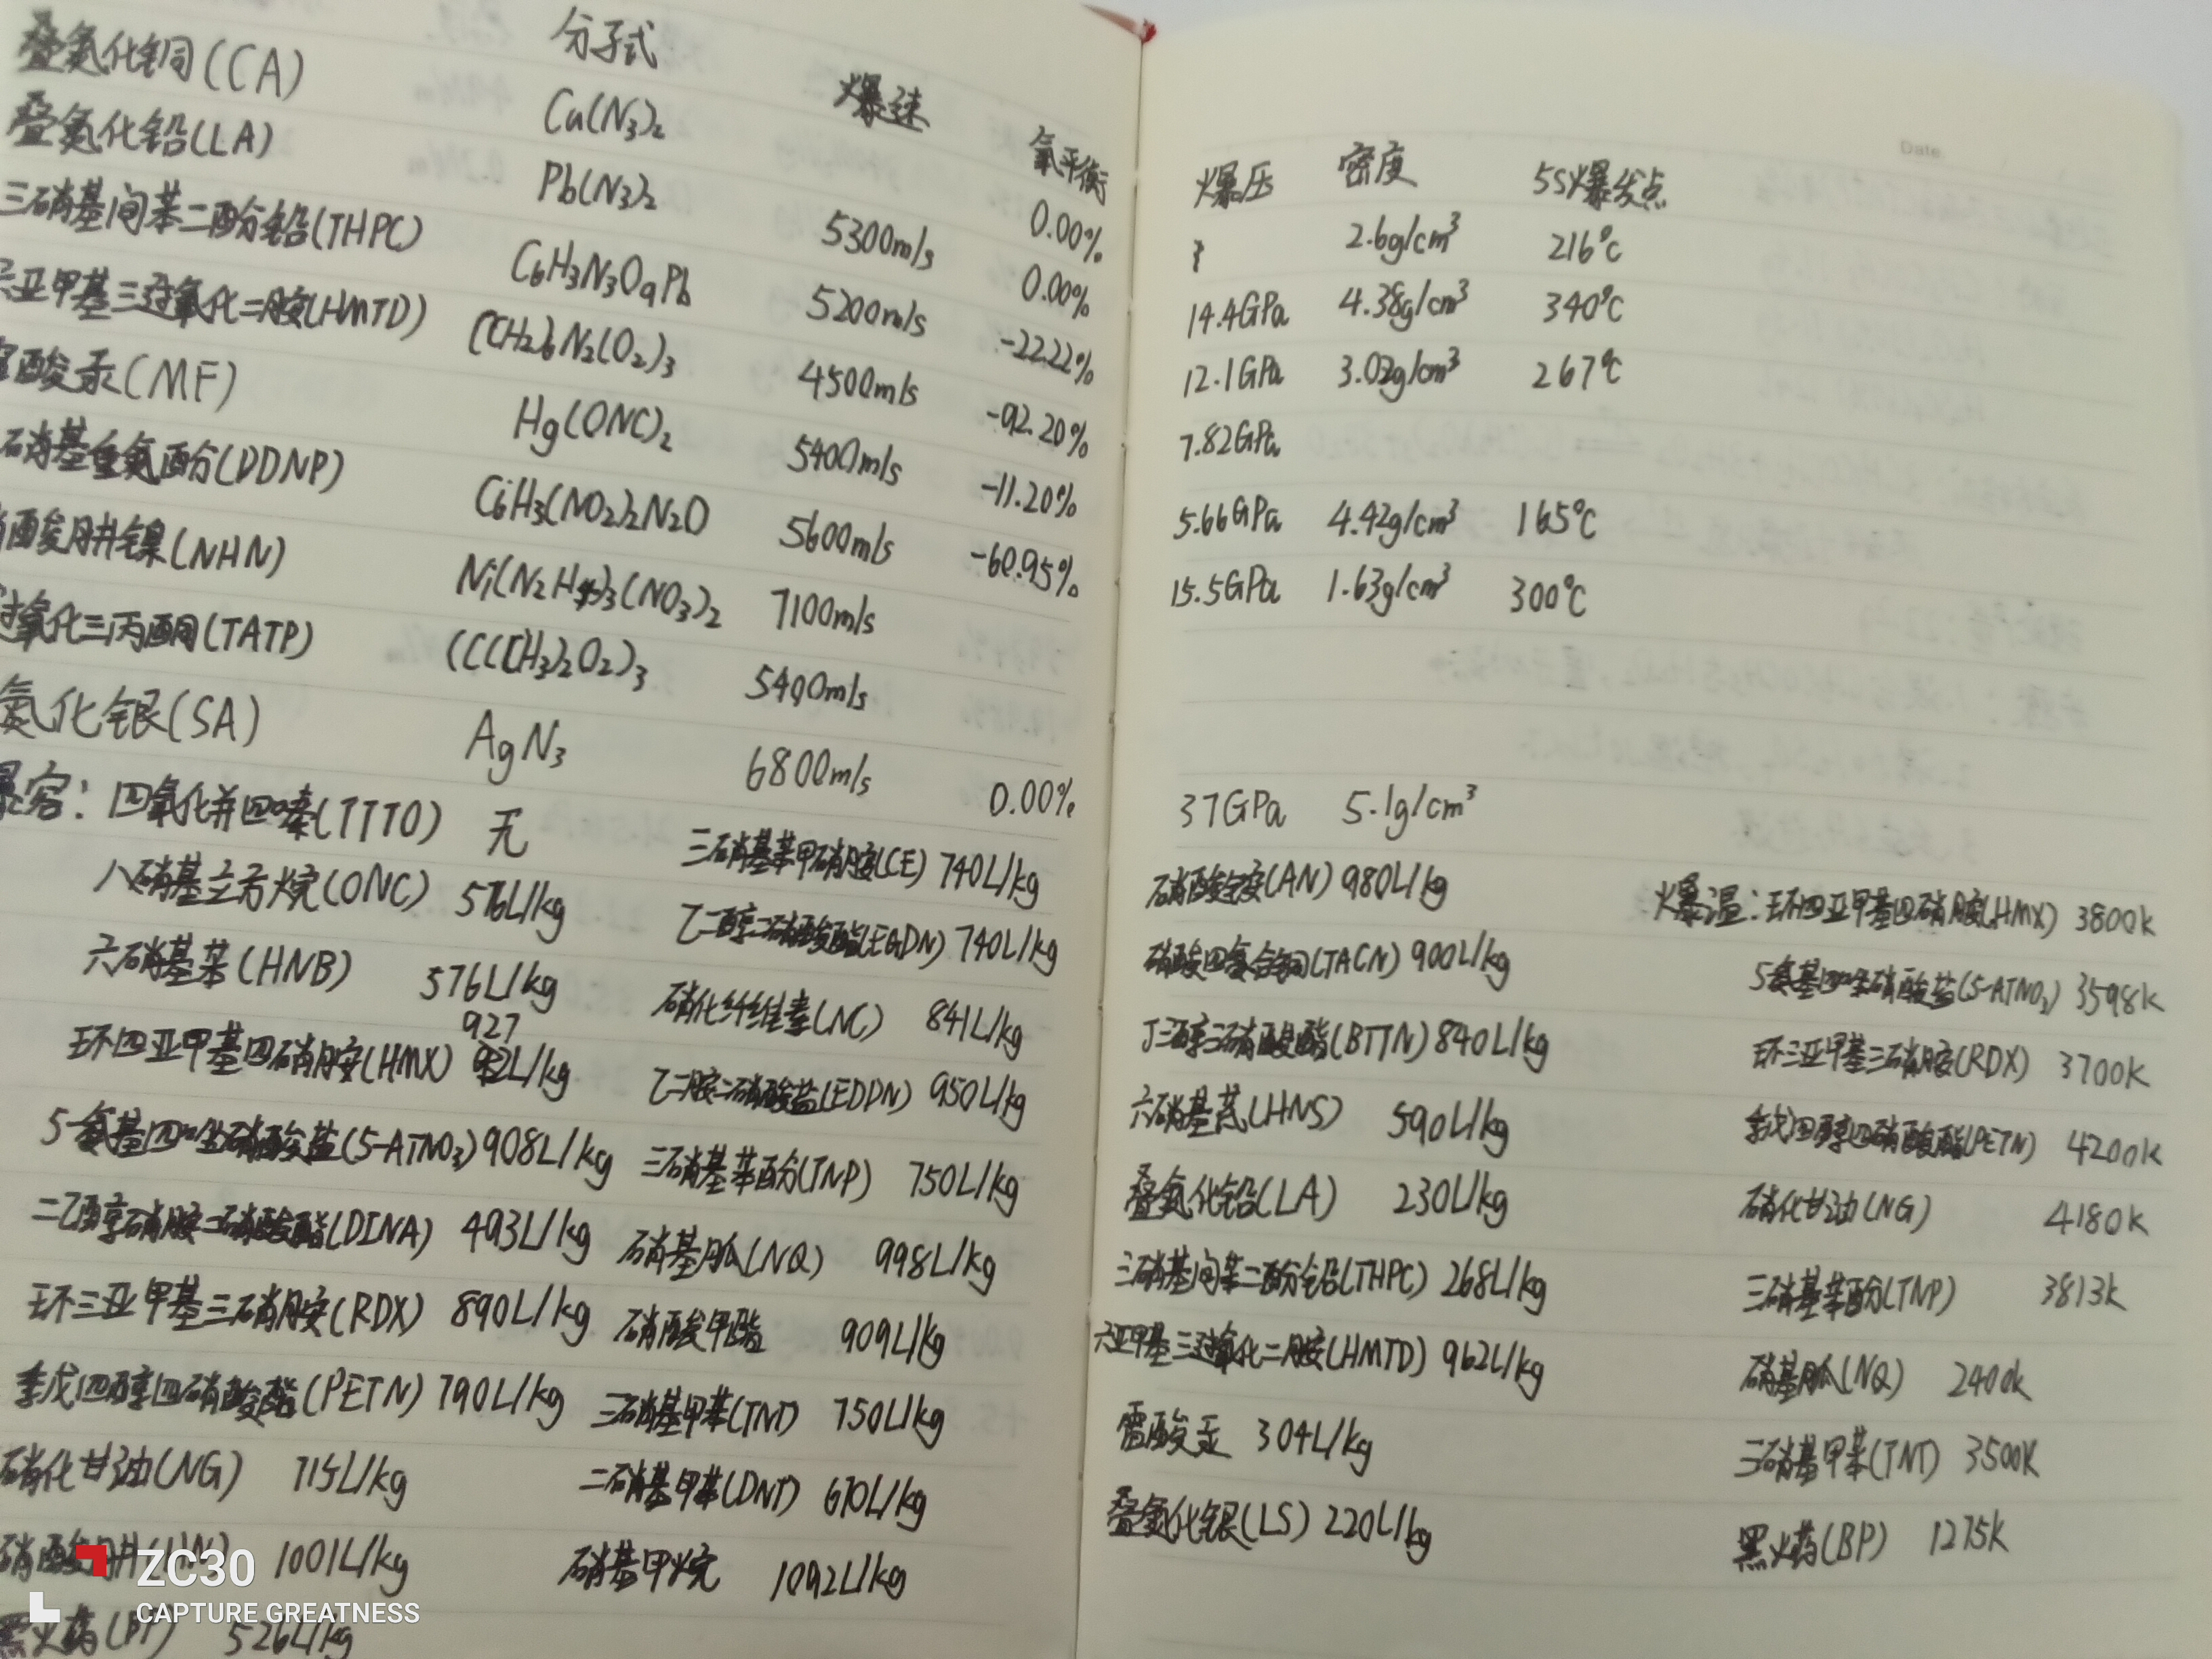 叠氮化铜(CA) 分子式 爆速 氧平衡
叠氮化铅(LA) Cu(N3)2 5300m/s 0.00%
三硝基间苯二酚铅(THPC) Pb(N3)2 5200m/s 0.00%
六亚甲基三过氧化二胺(HMTD) C6H3N3O9Pb 4500m/s -22.22%
酸汞(MF) (CH2)6N2(O2)3 5400m/s -92.20%
硝基重氮酚(DDNP) Hg(ONC)2 5600m/s -11.20%
酸肼镍(NHN) C6H3(NO2)2N2O 7100m/s -60.95%
过氧化三丙酮(TATP) Ni(N2H4)3(NO3)2 5400m/s
氮化银(SA) (C(CH3)2O2)3 6800m/s 0.00%
AgN3
容: 四氧化并四嗪(TTTO) 无 三硝基苯甲硝胺(CE) 740L/kg
八硝基立方烷(ONC) 576L/kg 乙二醇二硝酸酯(EGDN) 740L/kg
六硝基苯(HNB) 576L/kg 硝化纤维素(NC) 841L/kg
927
环四亚甲基四硝胺(HMX) L/kg 乙二胺二硝酸盐(EDDN) 950L/kg
5-氨基四唑硝酸盐(5-ATNO3) 908L/kg 三硝基苯酚(TNP) 750L/kg
二乙醇硝胺二硝酸酯(DINA) 493L/kg 硝基胍(NQ) 998L/kg
环三亚甲基三硝胺(RDX) 890L/kg 硝酸甲酯 909L/kg
季戊四醇四硝酸酯(PETN) 790L/kg 三硝基甲苯(TNT) 750L/kg
硝化甘油(NG) 715L/kg 二硝基甲苯(DNT) 670L/kg
硝酸肼(HN) 1001L/kg 硝基甲烷 1092L/kg
黑火药(BP) 526L/kg
ZC30
CAPTURE GREATNESS
Date
爆压 密度 5S爆发点
2.6g/cm³ 216℃
14.4GPa 4.38g/cm³ 340℃
12.1GPa 3.02g/cm³ 267℃
7.82GPa
5.66GPa 4.42g/cm³ 165℃
15.5GPa 1.63g/cm³ 300℃
37GPa 5.1g/cm³
硝酸铵(AN) 980L/kg 爆温: 环四亚甲基四硝胺(HMX) 3800k
硝酸四氨合铜(TACN) 900L/kg 5氨基四唑硝酸盐(5-ATNO3) 3598k
丁三醇三硝酸酯(BTTN) 840L/kg 环三亚甲基三硝胺(RDX) 3700k
六硝基芪(HNS) 590L/kg 季戊四醇四硝酸酯(PETN) 4200k
叠氮化铅(LA) 230L/kg 硝化甘油(NG) 4180k
三硝基间苯二酚铅(THPC) 268L/kg 三硝基苯酚(TNP) 3813k
六亚甲基三过氧化二胺(HMTD) 962L/kg 硝基胍(NQ) 2400k
雷酸汞 304L/kg 三硝基甲苯(TNT) 3500K
叠氮化银(LS) 220L/kg 黑火药(BP) 1275k